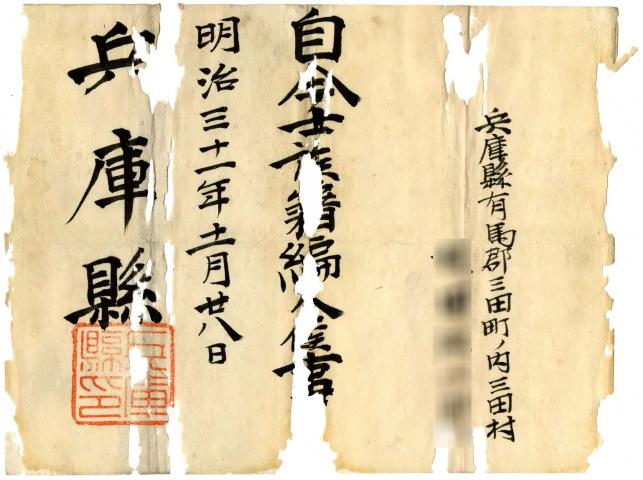 兵庫縣有馬郡三田町ノ内三田村
自今士族籍編入候事
明治三十一年十一月廿八日
兵庫縣
兵庫縣印